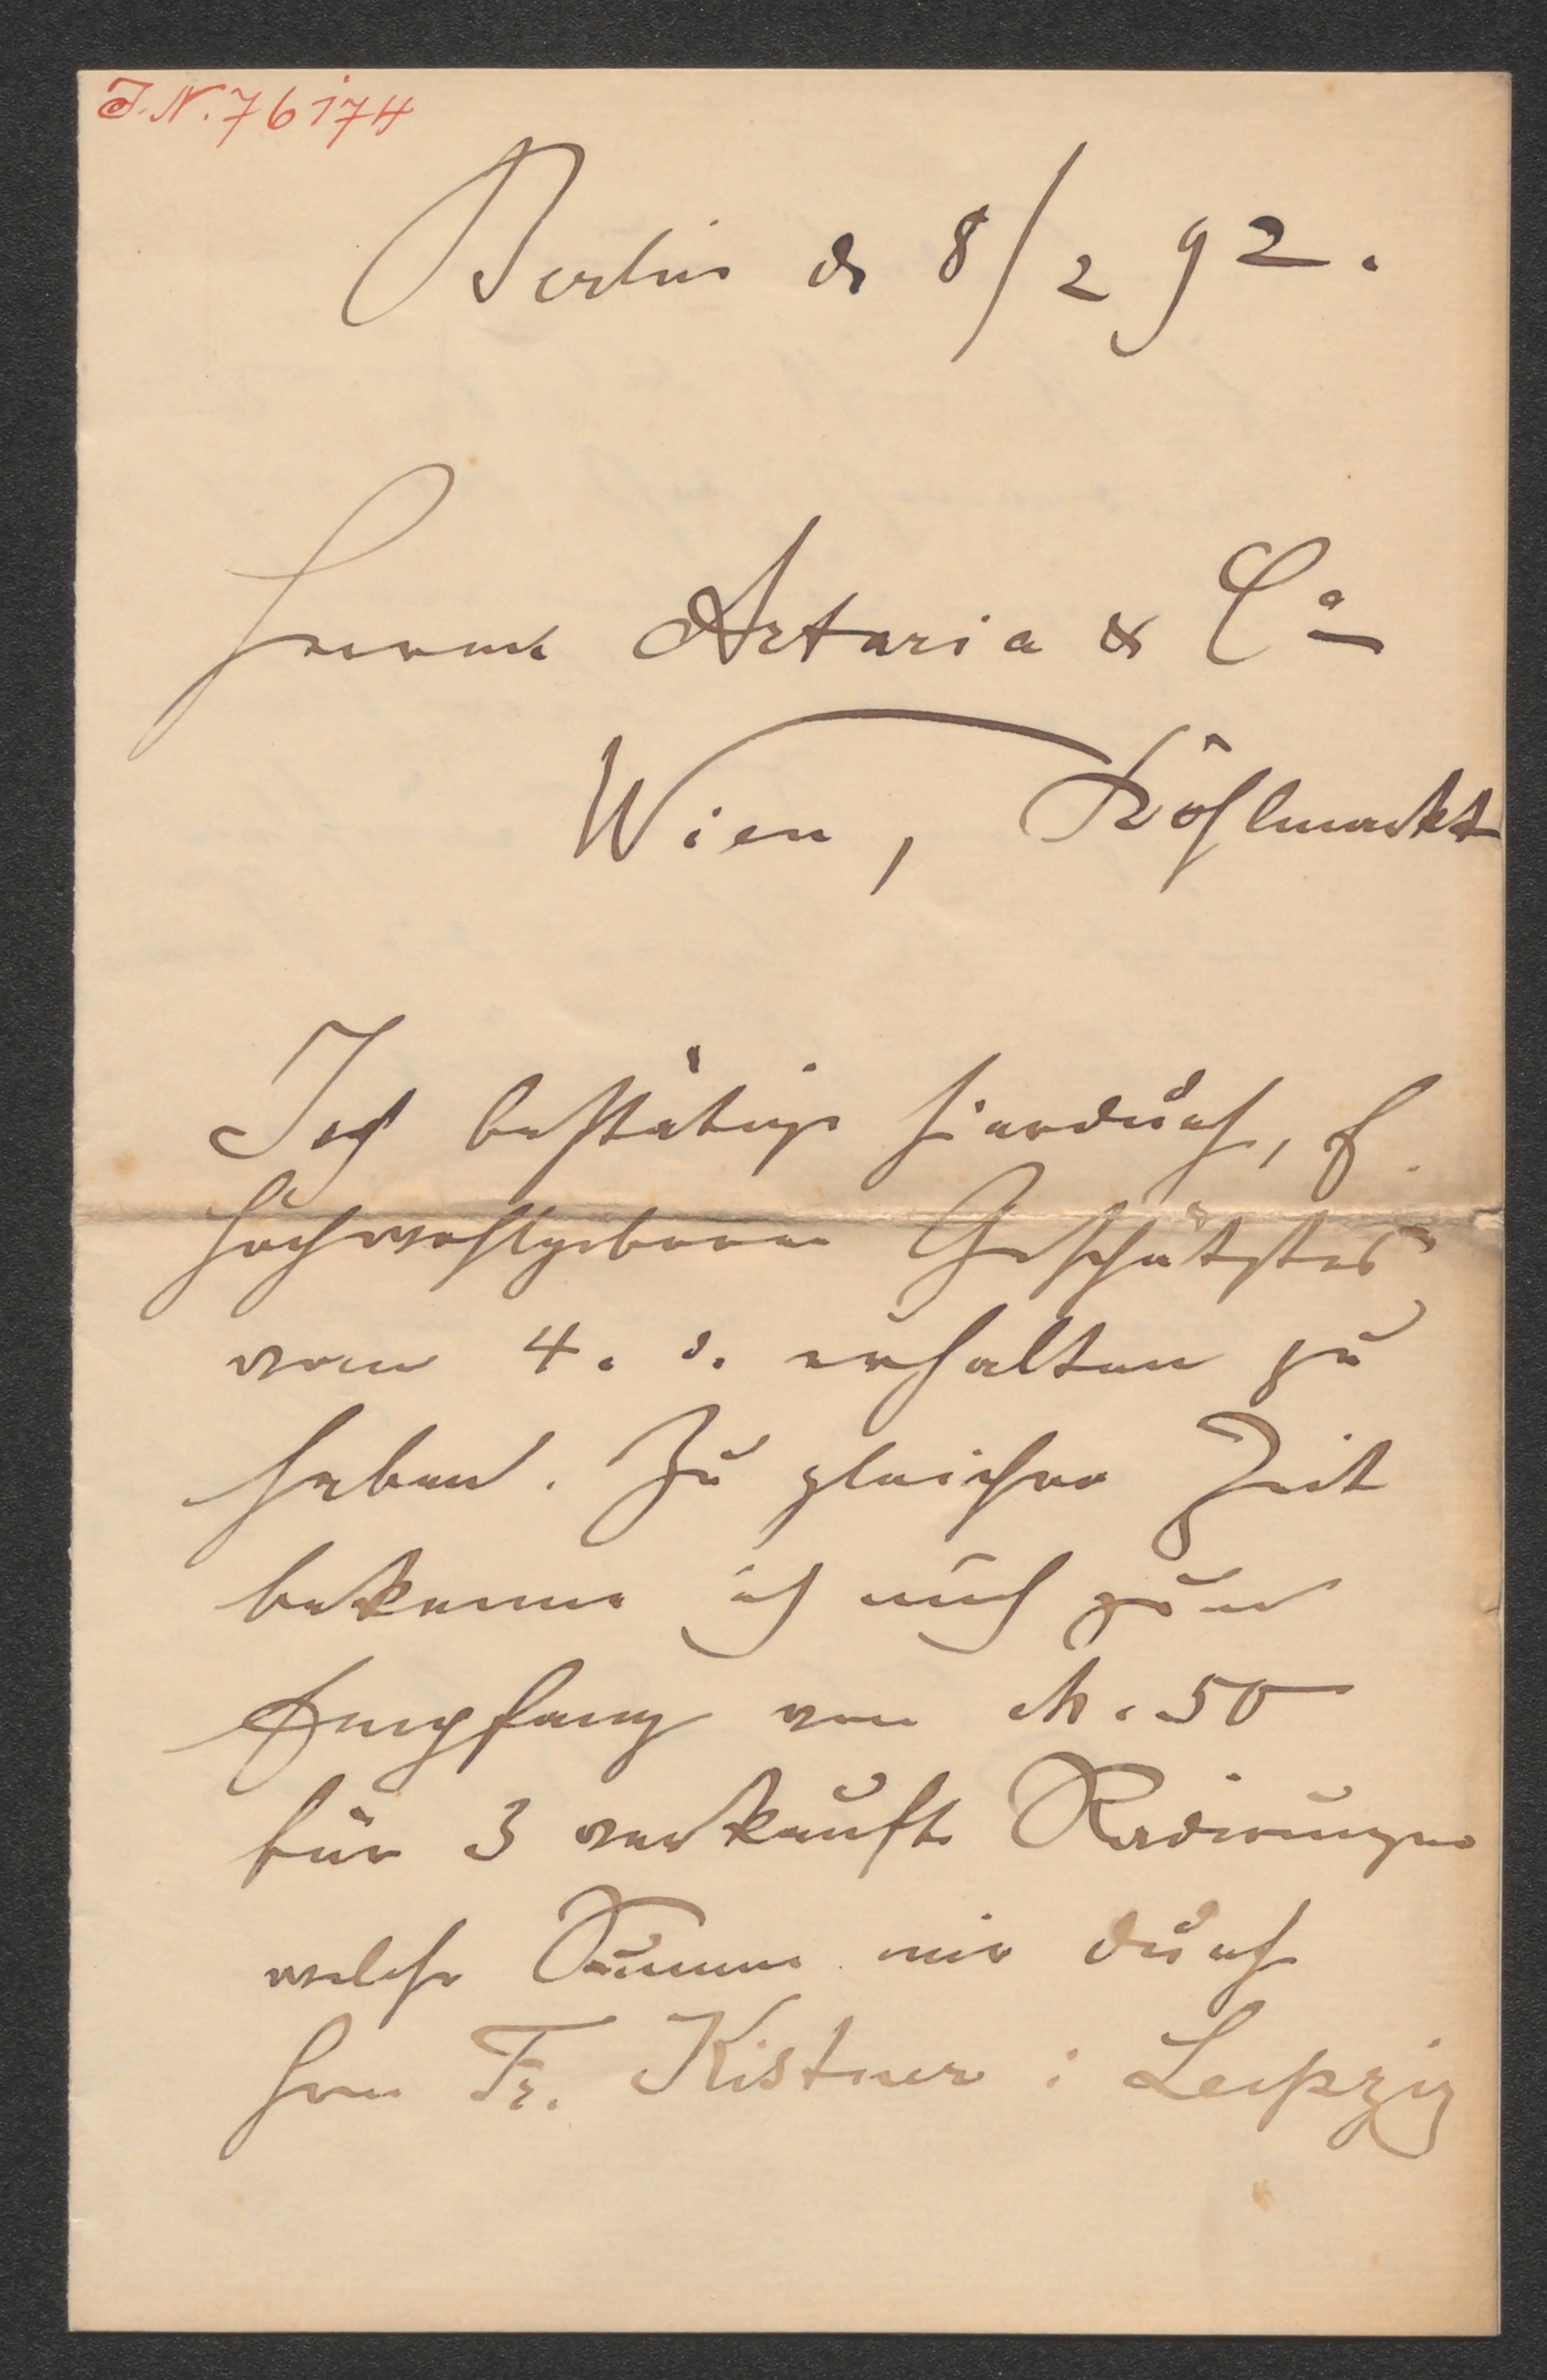 J.N. 76174
Berlin d 8/2 92.
Herren Artaria & Co
Wien, Kohlmarkt
Ich bestätige hierdurch, E.
Hochwohlgeboren Geschätztes
vom 4. d. erhalten zu
haben. Zu gleicher Zeit
bekenne ich mich zum
Empfang von M. 50
für 3 verkaufte Radirungen
welche Summe mir durch
Herrn Fr. Kistner i Leipzig